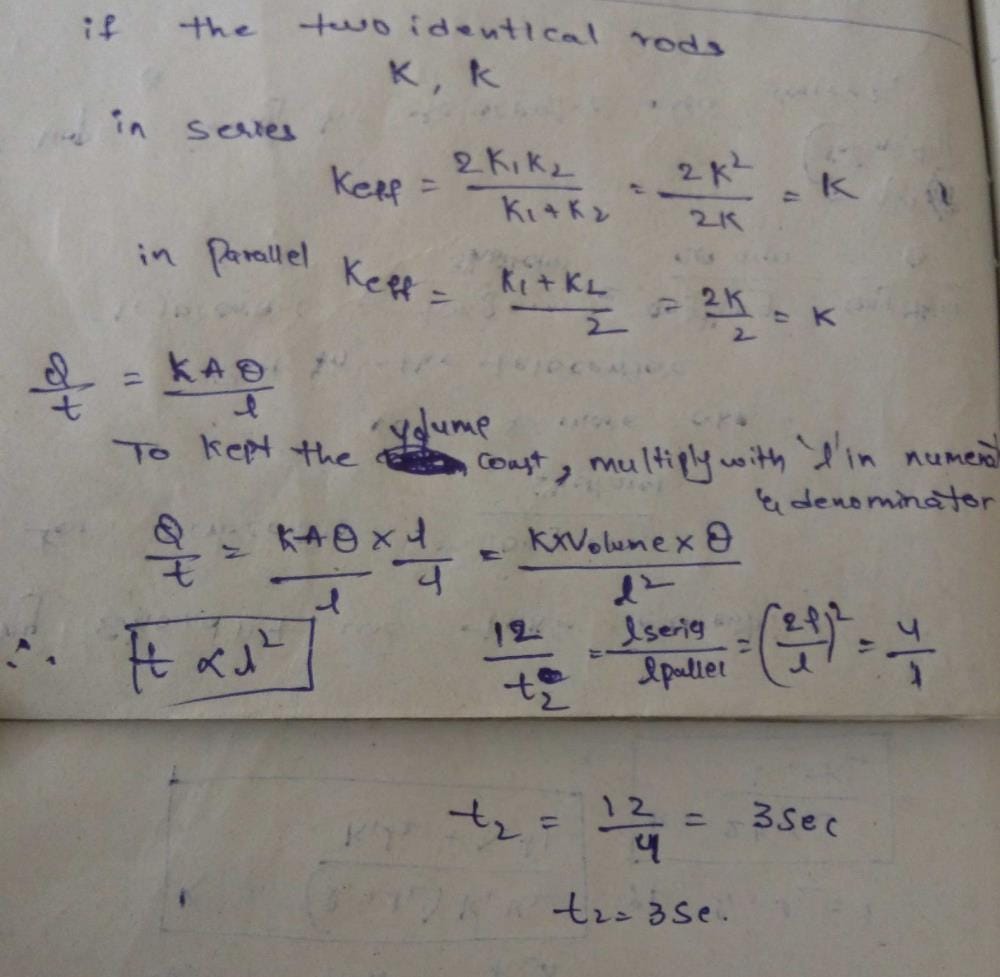 if the two identical rods
K, K
in series
Keff = 2K₁K₂ / K₁+K₂ = 2K² / 2K = K
in Parallel Keff = K₁+K₂ / 2 = 2K / 2 = K
Q / t = KAθ / l
To kept the volume const, multiply with 'l' in numera
& denominator
Q / t = KAθ / l × l / l = K×Volume×θ / l²
∴ t ∝ l² 12 / t₂ = lseries / lpallel = (2l / l)² = 4 / 1
t₂ = 12 / 4 = 3 sec
t₂ = 3 se.